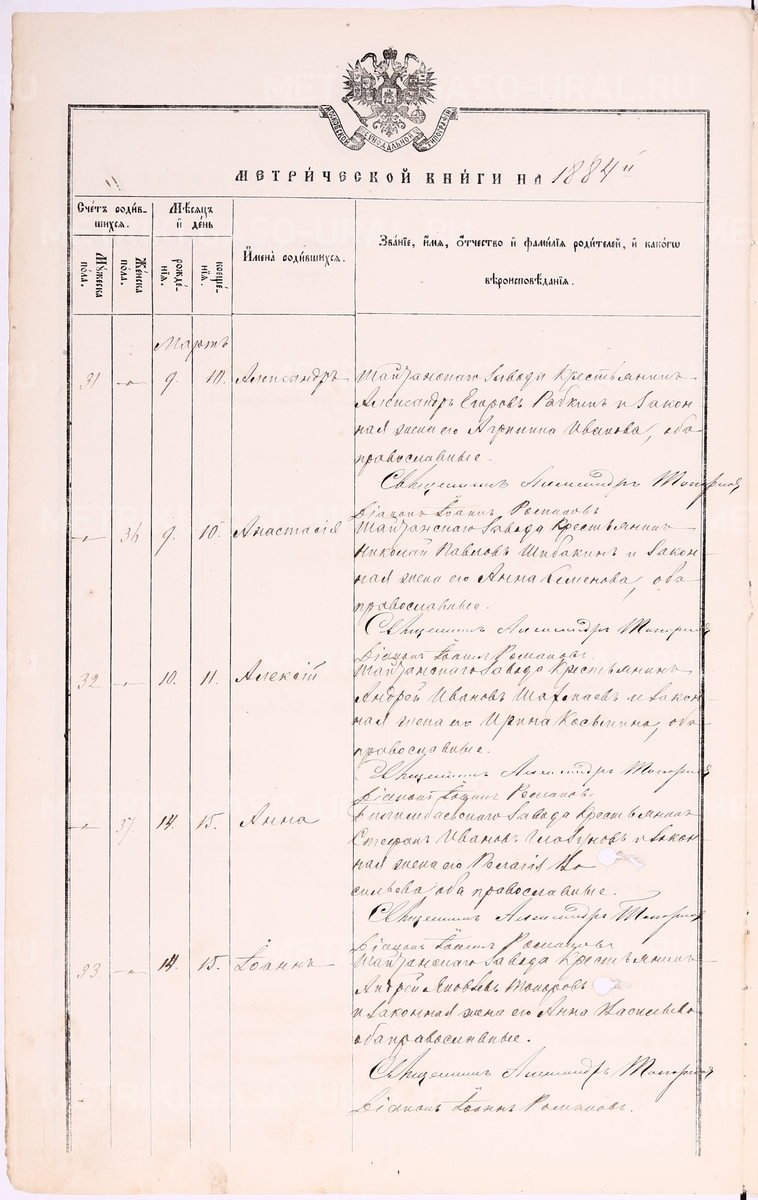 МОСКОВСКОЙ СѴНОДАЛЬНОЙ ТИПОГРАФІИ
МЕТРИ́ЧЕСКОЙ КНИ́ГИ НА 1884й
Сче́тъ роди́в-
шихся.
Му́жеска
по́ла.
Же́нска
по́ла.
Мѣ́сяцъ
и де́нь
рожде́-
нія.
креще́-
нія.
Имена̀ роди́вшихся.
Зва́ніе, и́мя, о́тчество и фами́лія роди́телей, и како́гѡ
вѣроисповѣ́данія.
Мартъ
31 " 9. 10. Александръ Шайтанскаго Завода Крестьянинъ
Александръ Егоровъ Рябкинъ и Закон
ная жена его Агрипина Иванова, оба
православные.
Священникъ Александръ Топорков
Діаконъ Іоаннъ Романовъ
" 36 9. 10. Анастасія Шайтанскаго Завода Крестьянинъ
Николай Павловъ Шибакинъ и Закон-
ная жена его Анна Семенова, оба
православные.
Священникъ Александръ Топорков
Діаконъ Іоаннъ Романовъ.
32 " 10. 11. Алексій Шайтанскаго Завода Крестьянинъ
Андрей Ивановъ и Закон-
ная жена его Ирина Косьмина, оба
православные.
Священникъ Александръ Топорков
Діаконъ Іоаннъ Романовъ
" 37. 14. 15. Анна Билимбаевскаго Завода Крестьянинъ
Стефанъ Ивановъ Глазуновъ и Закон
ная жена его Пелагія Ва
сильева оба православные.
Священникъ Александръ Топорков
Діаконъ Іоаннъ Романовъ
33. " 14. 15. Іоаннъ Шайтанскаго Завода Крестьянинъ
Андрей Яковлевъ Топоровъ
и Законная жена его Анна Васильева
оба православные.
Священникъ Александръ Топорков
Діаконъ Іоаннъ Романовъ.